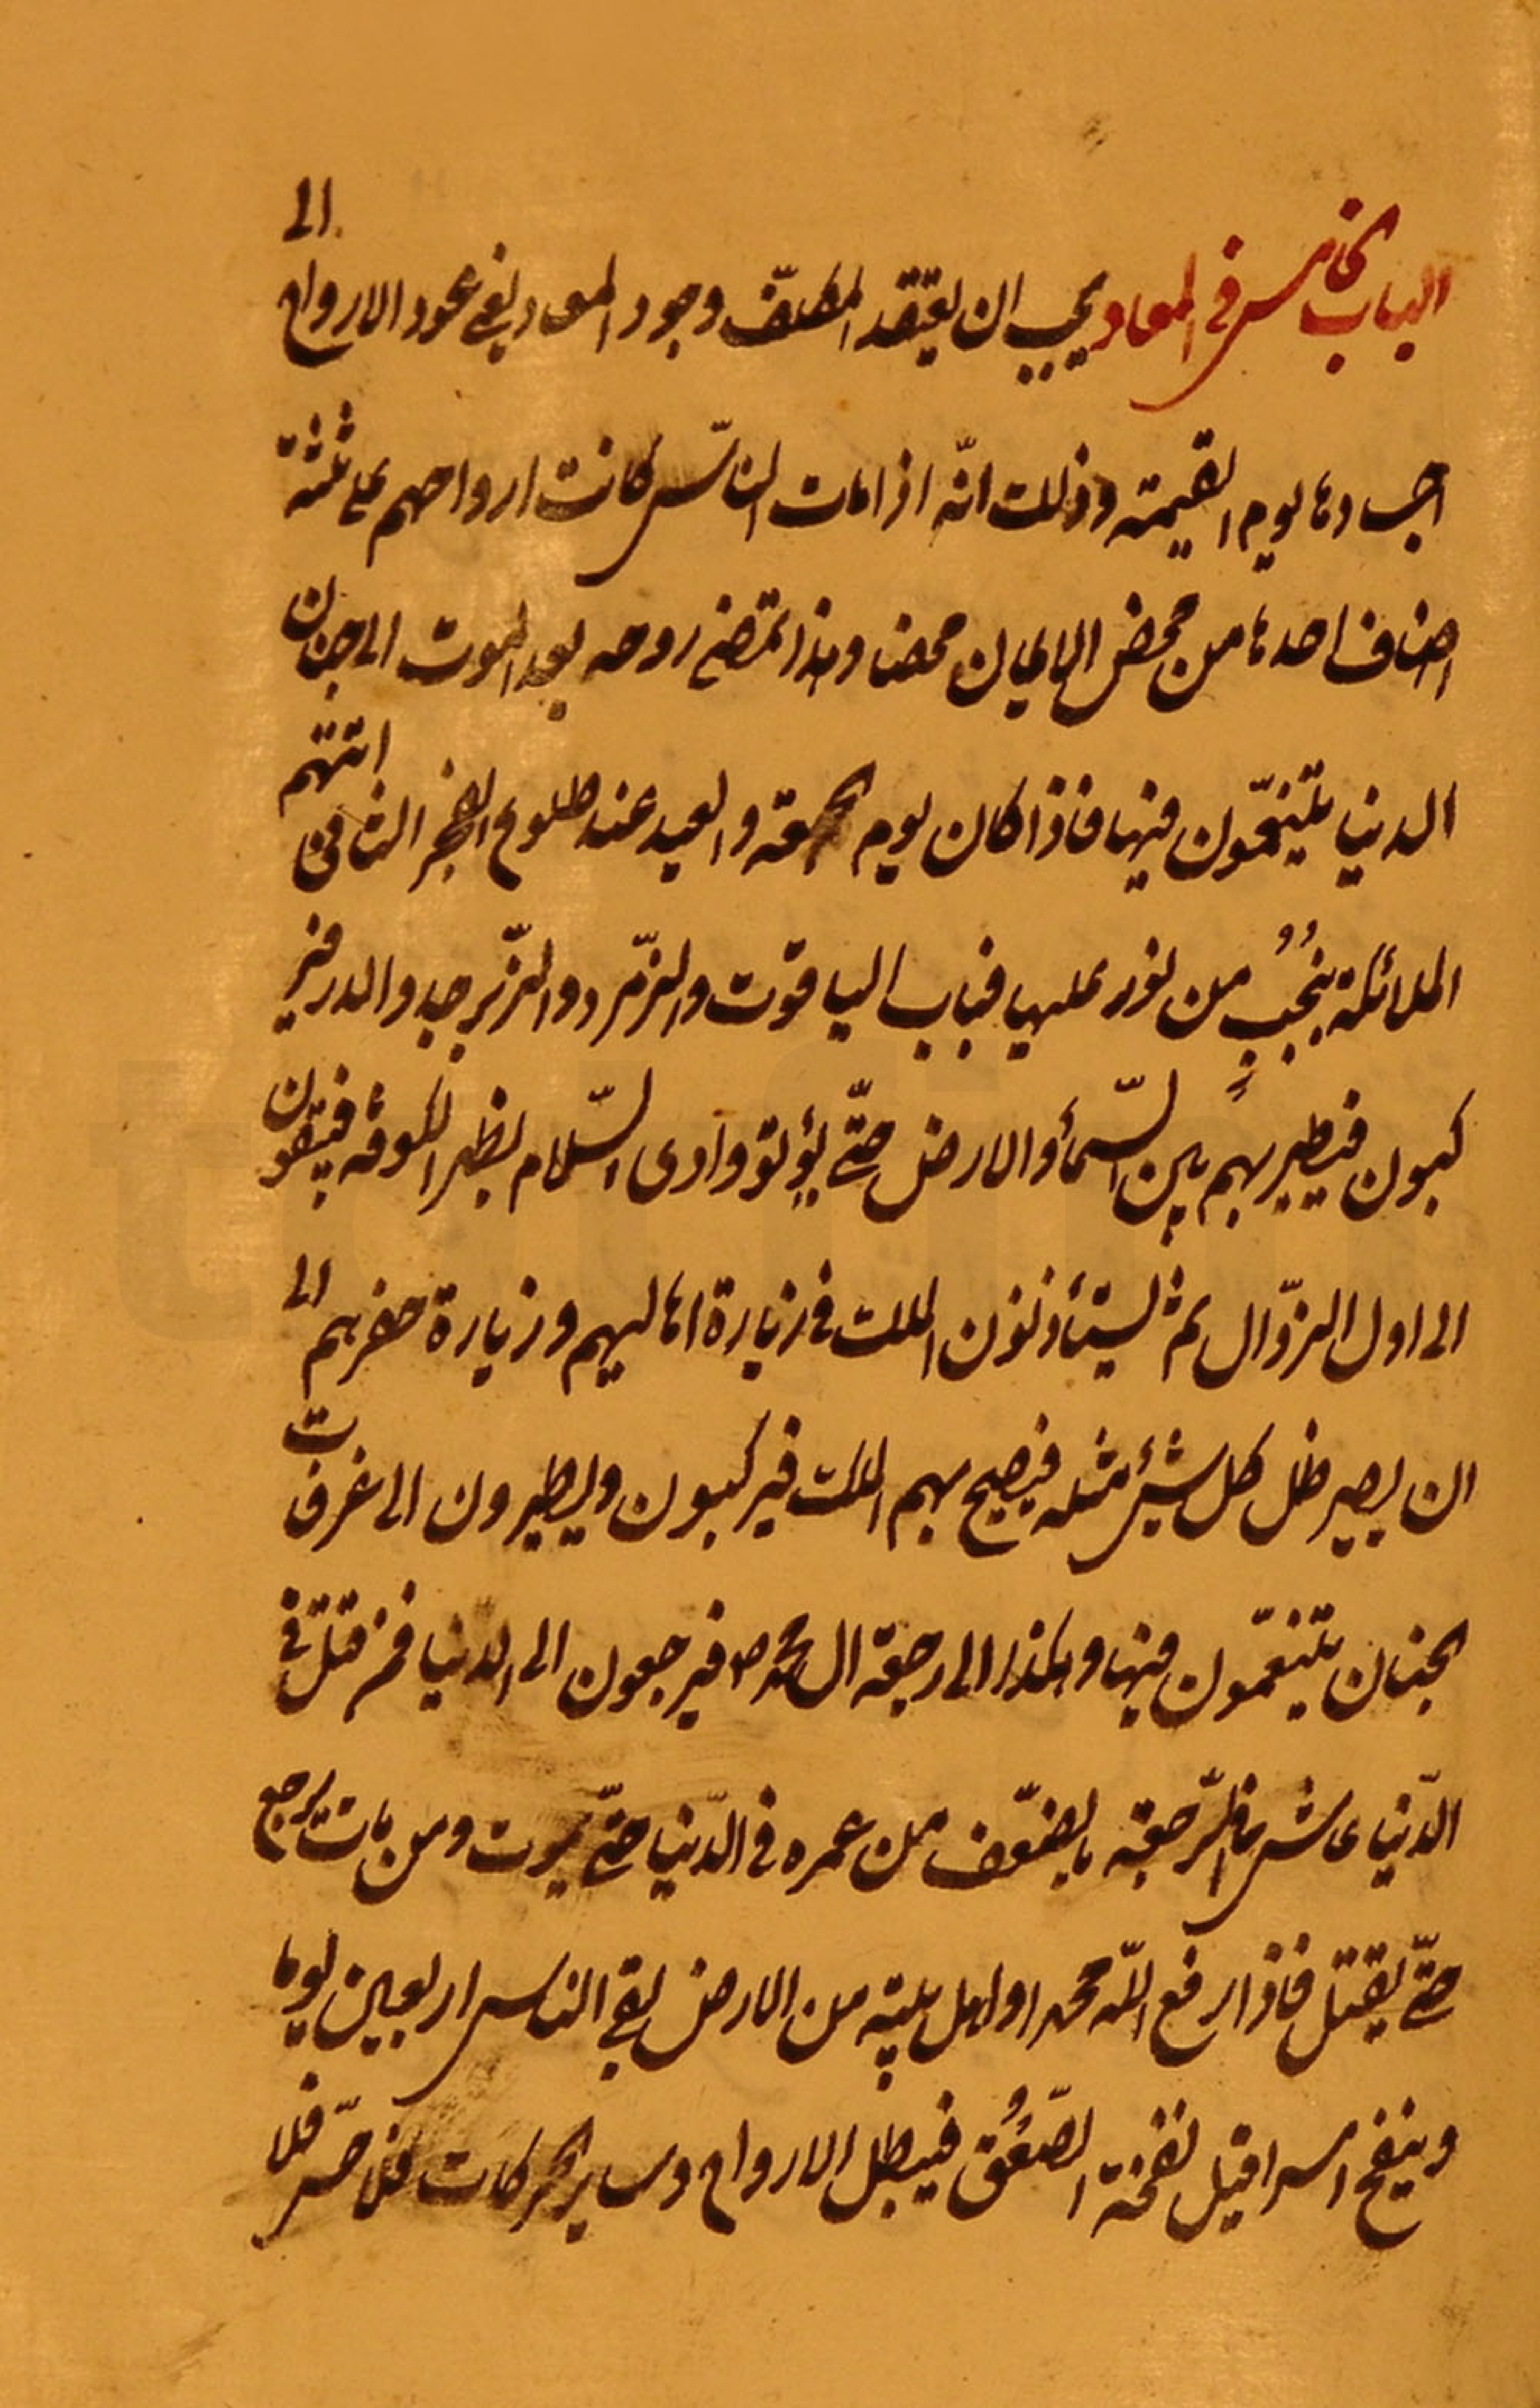 الباب الخامس في المعاد يجب ان يعتقد المكلّف وجود المعاد يعني عود الارواح الى
اجسادها يوم القيمة وذلك انّه اذا مات النّاس كانت ارواحهم على ثلثة
اصناف احدها من محض الايمان محضا وهذا تمضي روحه بعد الموت الى جنان
الدنيا يتنعّمون فيها فاذا كان يوم الجمعة والعيد عند طلوع الفجر الثاني اتتهم
الملائكة بنُجُبٍ من نور عليها قباب الياقوت والزّمرد والزّبرجد والدر فير
كبون فيطير بهم بين السّمآء والارض حتّى يؤتوا وادى السّلام بظهر الكوفة فيبقون
الى اول الزّوال ثم يستأذنون الملك في زيارة اهاليهم وزيارة حفرهم الى
ان يصير ظل كل شئ مثله فيصيح بهم الملك فيركبون ويطيرون الى غرفات
الجنان يتنعّمون فيها وهكذا الى رجعة ال محمد ص فيرجعون الى الدنيا فمن قتل في
الدّنيا عاش في الرّجعة بالضعّف من عمره في الدّنيا حتّى يموت ومن مات يرجع
حتّى يقتل فاذا رفع اللّه محمدا واهل بيته من الارض بقى الناس اربعين يوما
وينفخ اسرافيل نفخة الصّعُق فيبطل الارواح وساير الحركات فلا حسّ فلا